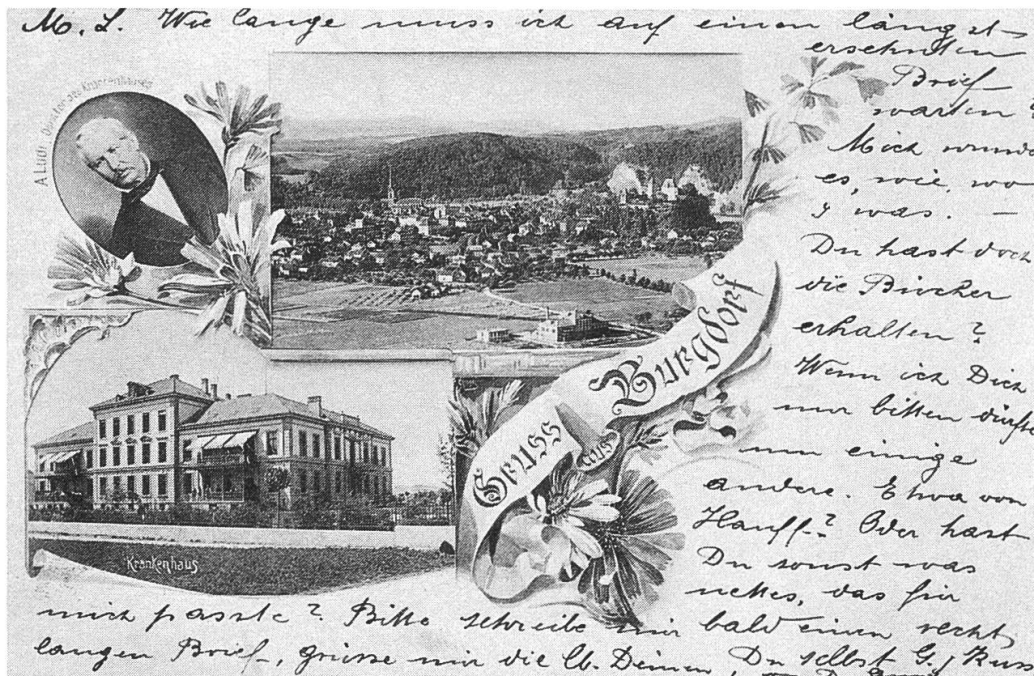 M. L. Wie lange muss ich auf einen längst
ersehnten
Brief
warten?
Mich wundert
es, wie, wo
& was. —
Du hast doch
die Bücher
erhalten?
Wenn ich Dich
nur bitten dürfte
um einige
andere. Etwa von
Hauff? Oder hast
Du sonst was
nettes, das für
mich passte? Bitte schreibe mir bald einen recht
langen Brief, grüsse mir die lb. Deinen, Du selbst G. & Kuss
Gruss
aus
Burgdorf
Krankenhaus